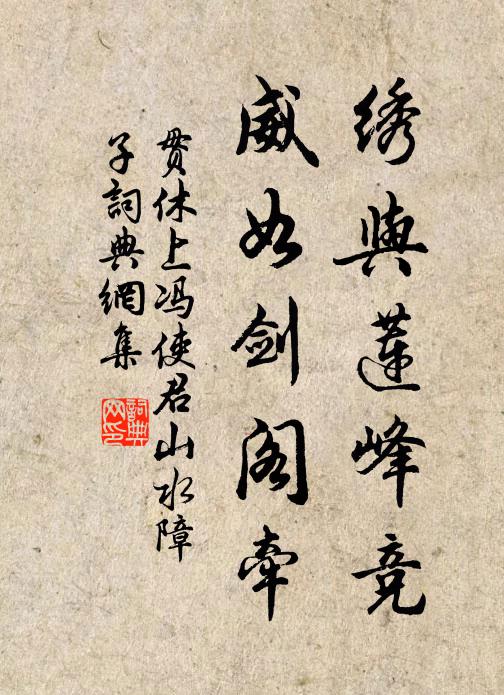 绣與蓮峰竞
威如剑阁牵
贯休上冯使君山水障
子詞典網集
詞典
网印